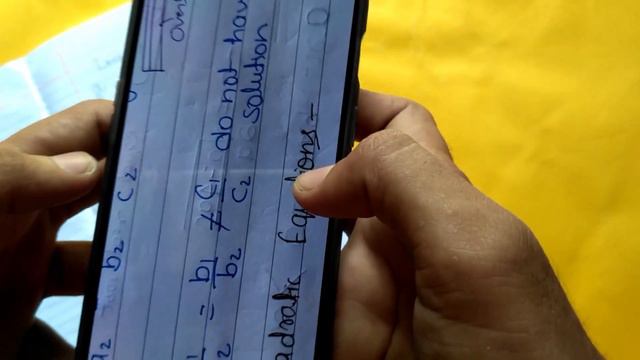 b₂ c₂
= b₁/b₂ ≠ c₁/c₂ do not hav
solution
adratic Equations -